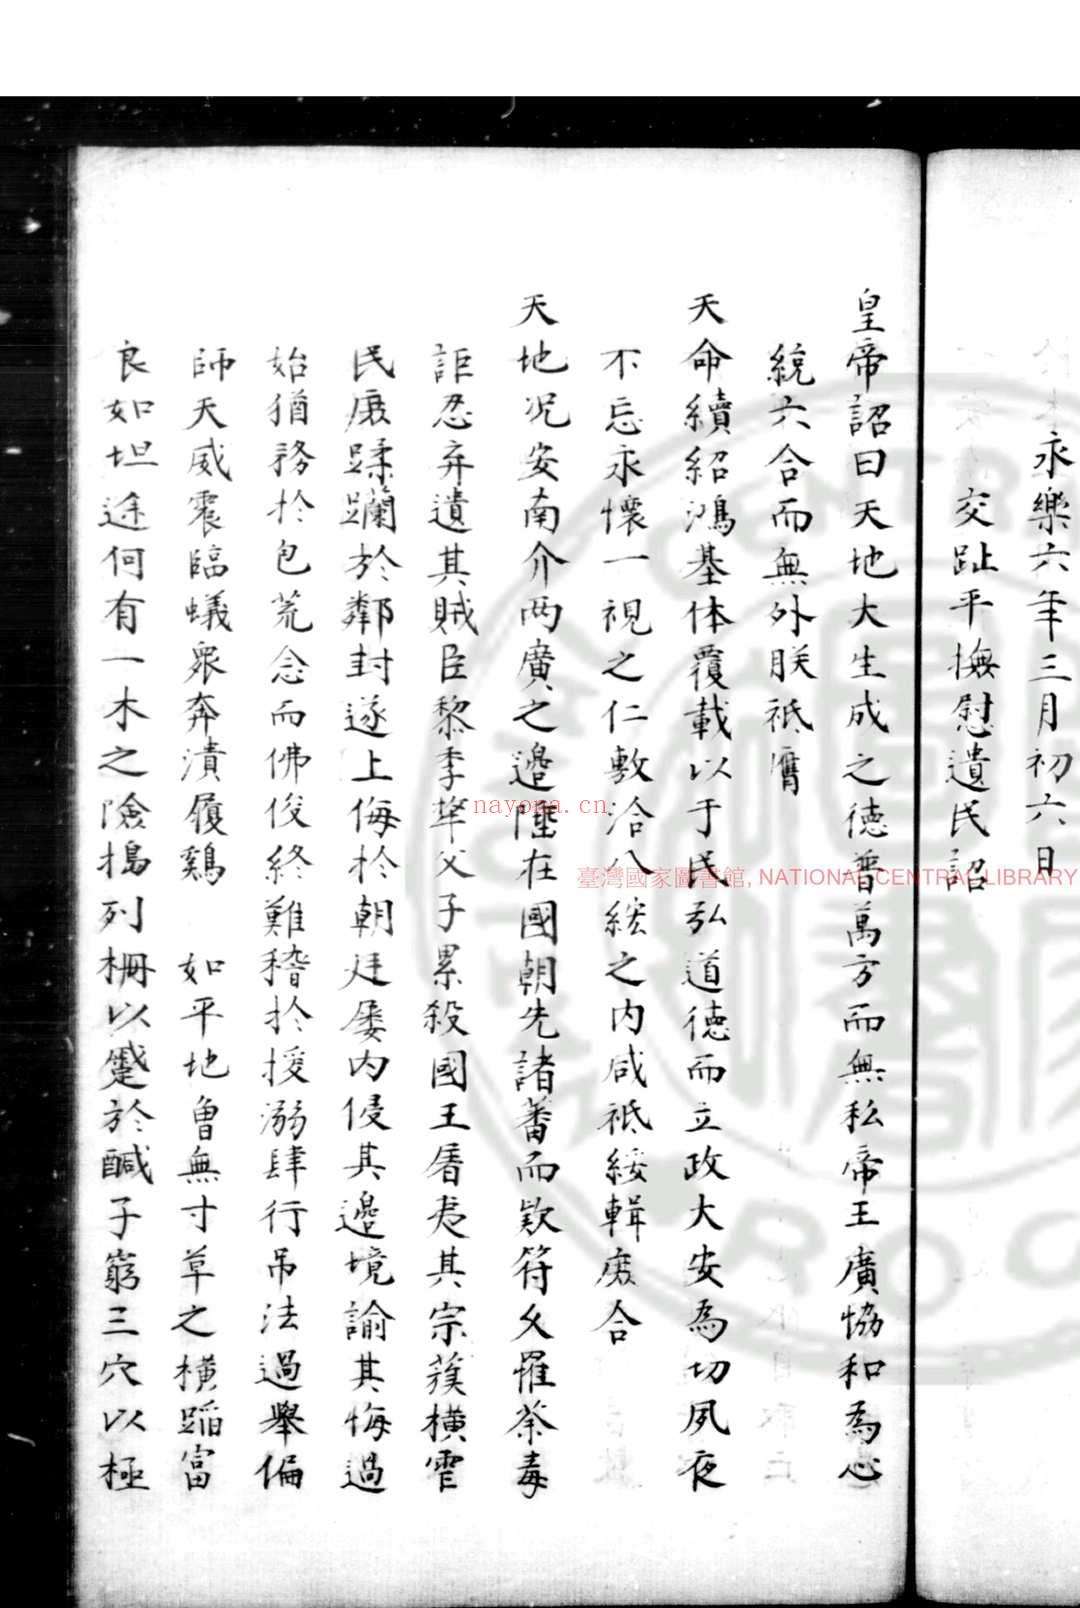 永樂六年三月初六日
交趾平撫慰遺民詔
皇帝詔曰天地大生成之德普萬方而無私帝王廣協和為心
統六合而無外朕祗膺
天命續紹鴻基体覆載以于民弘道德而立政大安為切夙夜
不忘永懷一視之仁敷洽八紘之内咸祗綏輯庶合
天地况安南介两廣之邊陲在國朝先諸蕃而欵符久罹荼毒
詎忍弃遺其賊臣黎季犛父子累殺國王屠夷其宗蔟橫雪
民康蹂躪於鄰封遂上侮扵朝廷屡内侵其邊境諭其悔過
始猶務扵包荒念而佛俊終難稽扵援溺肆行吊法過舉偏
師天威震臨蟻衆奔潰履鷄 如平地曾無寸草之橫蹈富
良如坦途何有一木之險搗列柵以蹙於鹹子窮三穴以極
臺灣國家圖書館, NATIONAL CENTRAL LIBRARY
nayona.cn